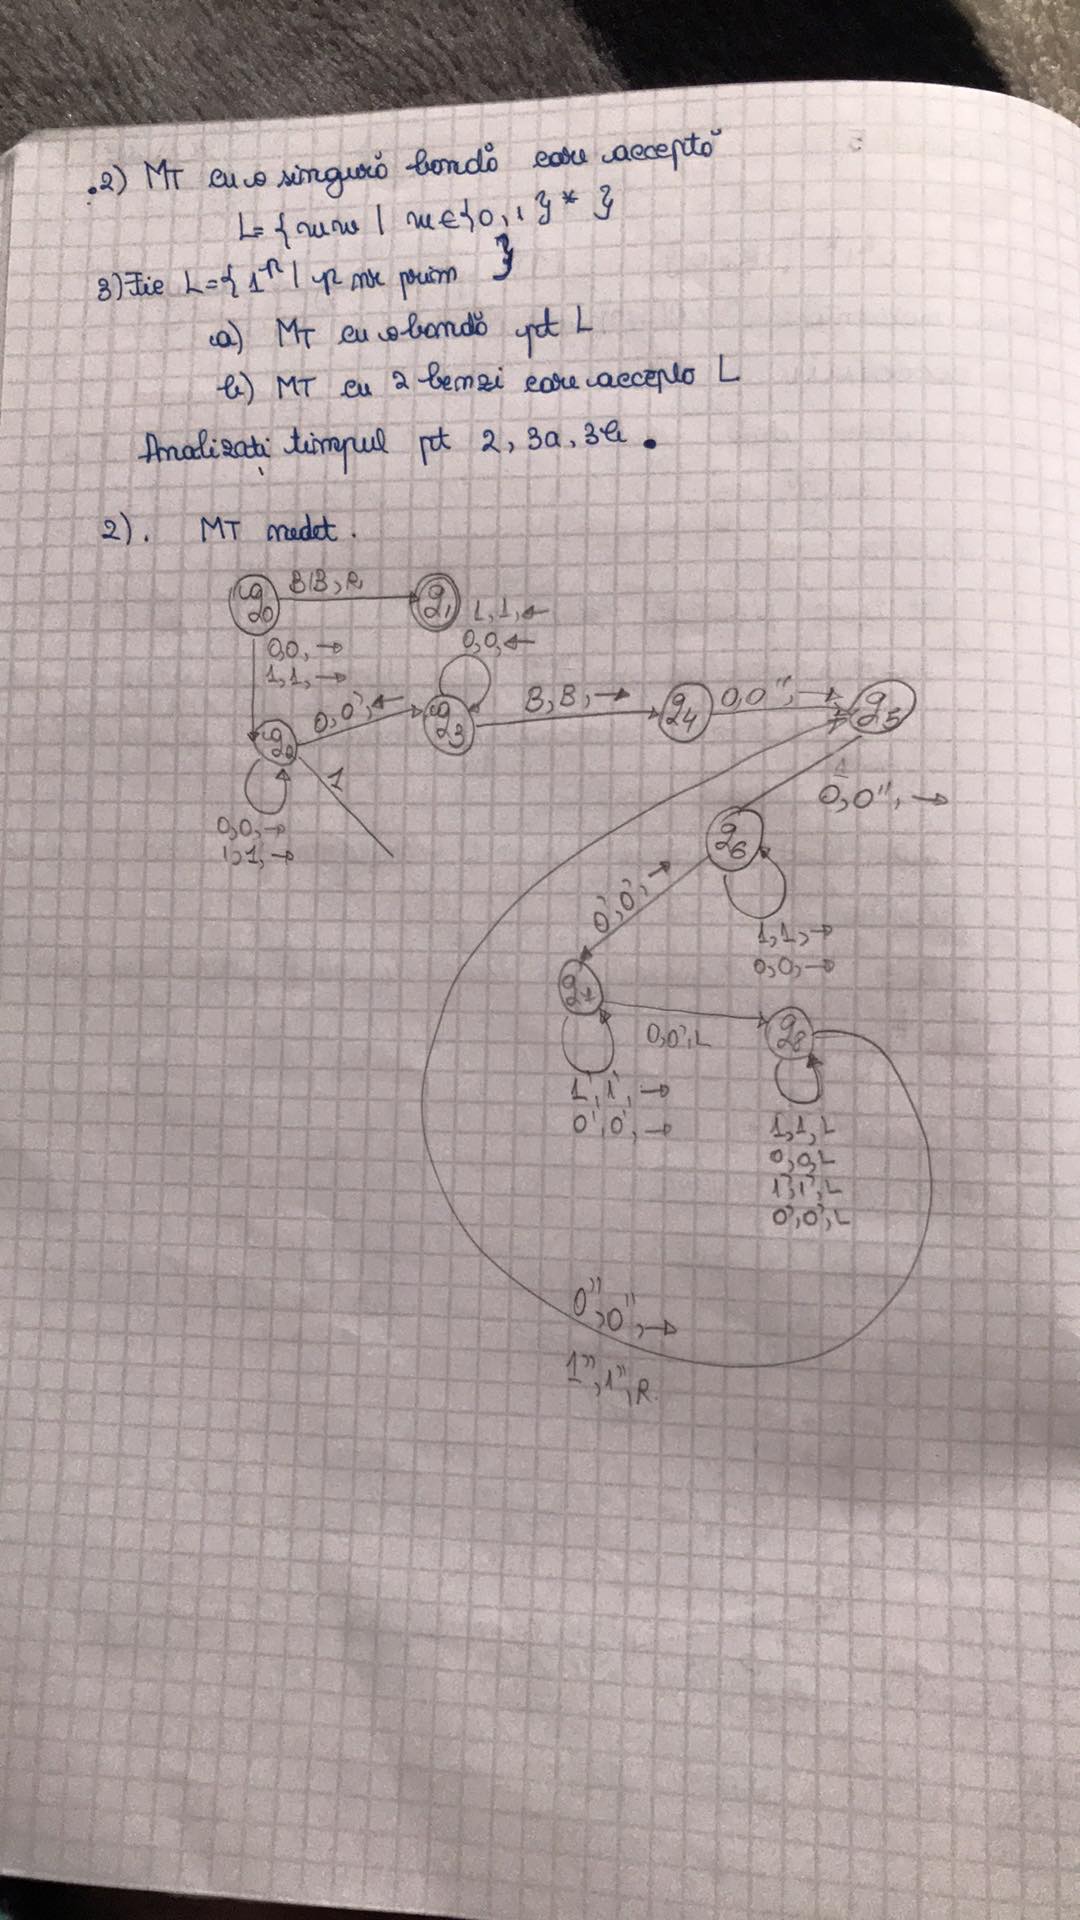 2) MT cu o singură bandă care acceptă
L = { ww | w ∈ {0,1}* }
3) Fie L = { 1^p | p nr prim }
a) MT cu o bandă pt L
b) MT cu 2 benzi care accepta L
Analizați timpul pt 2, 3a, 3b.
2). MT nedet.
q0 B B, R q1
1, 1, ←
0, 0, ←
0, 0, →
1, 1, →
q2 0, 0', ← q3 B, B, → q4 0, 0'', → q5
1
0, 0'', →
0, 0, →
1, 1, →
q6
0', 0', →
1, 1, →
0, 0, →
q7 0, 0', L q8
1', 1', →
0', 0', →
1, 1, L
0, 0, L
1', 1', L
0', 0', L
0'', 0'', →
1'', 1'', R